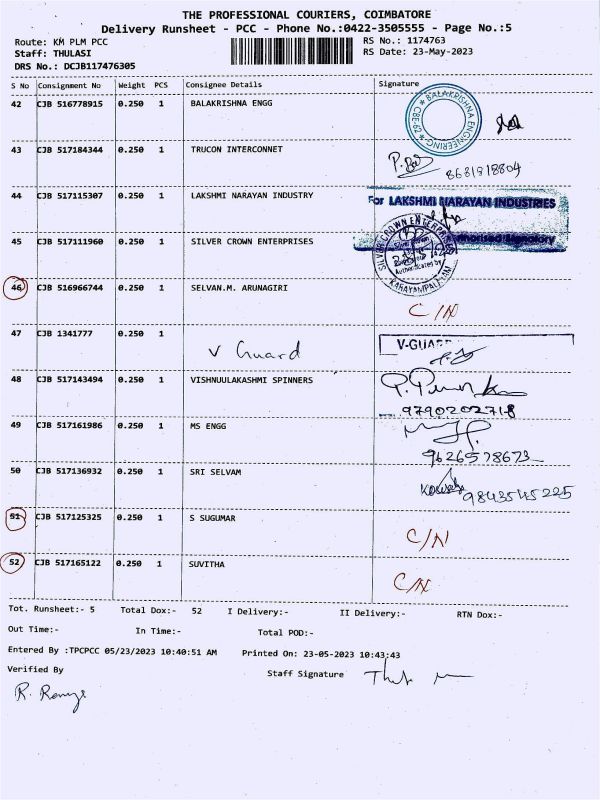 THE PROFESSIONAL COURIERS, COIMBATORE
Delivery Runsheet - PCC - Phone No.:0422-3505555 - Page No.:5
Route: KM PLM PCC RS No.: 1174763
Staff: THULASI RS Date: 23-May-2023
DRS No.: DCJB117476305
S No Consignment No Weight PCS Consignee Details Signature
42 CJB 516778915 0.250 1 BALAKRISHNA ENGG
BALAKRISHNA ENGINEERING CBE-62
43 CJB 517184344 0.250 1 TRUCON INTERCONNET
8681918804
44 CJB 517115307 0.250 1 LAKSHMI NARAYAN INDUSTRY
For LAKSHMI NARAYAN INDUSTRIES
Authorised Signatory
45 CJB 517111960 0.250 1 SILVER CROWN ENTERPRISES
SILVER CROWN ENTERPRISES
46 CJB 516966744 0.250 1 SELVAN.M. ARUNAGIRI
C/N
47 CJB 1341777 0.250 1
V Guard V-GUARD
48 CJB 517143494 0.250 1 VISHNUULAKASHMI SPINNERS
9790202718
49 CJB 517161986 0.250 1 MS ENGG
9626578673
50 CJB 517136932 0.250 1 SRI SELVAM
9843545225
51 CJB 517125325 0.250 1 S SUGUMAR
C/N
52 CJB 517165122 0.250 1 SUVITHA
C/N
Tot. Runsheet:- 5 Total Dox:- 52 I Delivery:- II Delivery:- RTN Dox:-
Out Time:- In Time:- Total POD:-
Entered By :TPCPCC 05/23/2023 10:40:51 AM Printed On: 23-05-2023 10:43:43
Verified By Staff Signature